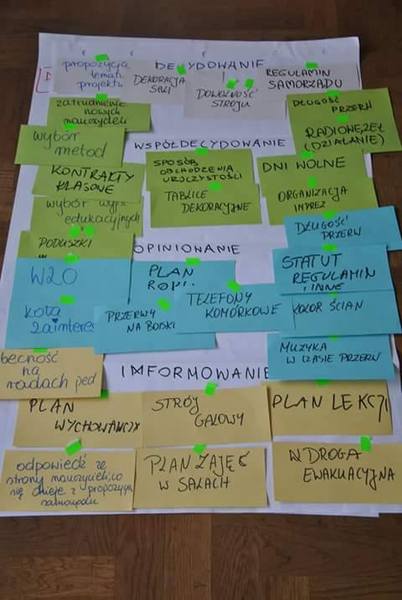 DECYDOWANIE
propozycja
tematu
projektu
DEKORACJA
SALI
DOWOLNOŚĆ
STROJU
REGULAMIN
SAMORZĄDU
zatrudnienie
nowych
nauczycieli
DŁUGOŚĆ
PRZERW
wybór
metod
RADIOWĘZEŁ
(DZIAŁANIE)
WSPÓŁDECYDOWANIE
KONTRAKTY
KLASOWE
SPOSÓB
OBCHODZENIA
UROCZYSTOŚCI
DNI WOLNE
wybór
edukacyjnych
TABLICE
DEKORACYJNE
ORGANIZACJA
IMPREZ
PODUSZKI
DŁUGOŚĆ
PRZERW
OPINIOWANIE
WZO
PLAN
STATUT
REGULAMIN
I INNE
koła
zainteres
PRZERWY
NA BOISKU
TELEFONY
KOMÓRKOWE
KOLOR ŚCIAN
MUZYKA
W CZASIE PRZERW
becność
na
radach ped
IMFORMOWANIE
PLAN
WYCHOWAWCZY
STRÓJ
GALOWY
PLAN LEKCJI
odpowiedź ze
strony nauczycieli co
się dzieje z propozycją
samorządu
PLAN ZAJĘĆ
W SALACH
DROGA
EWAKUACYJNA